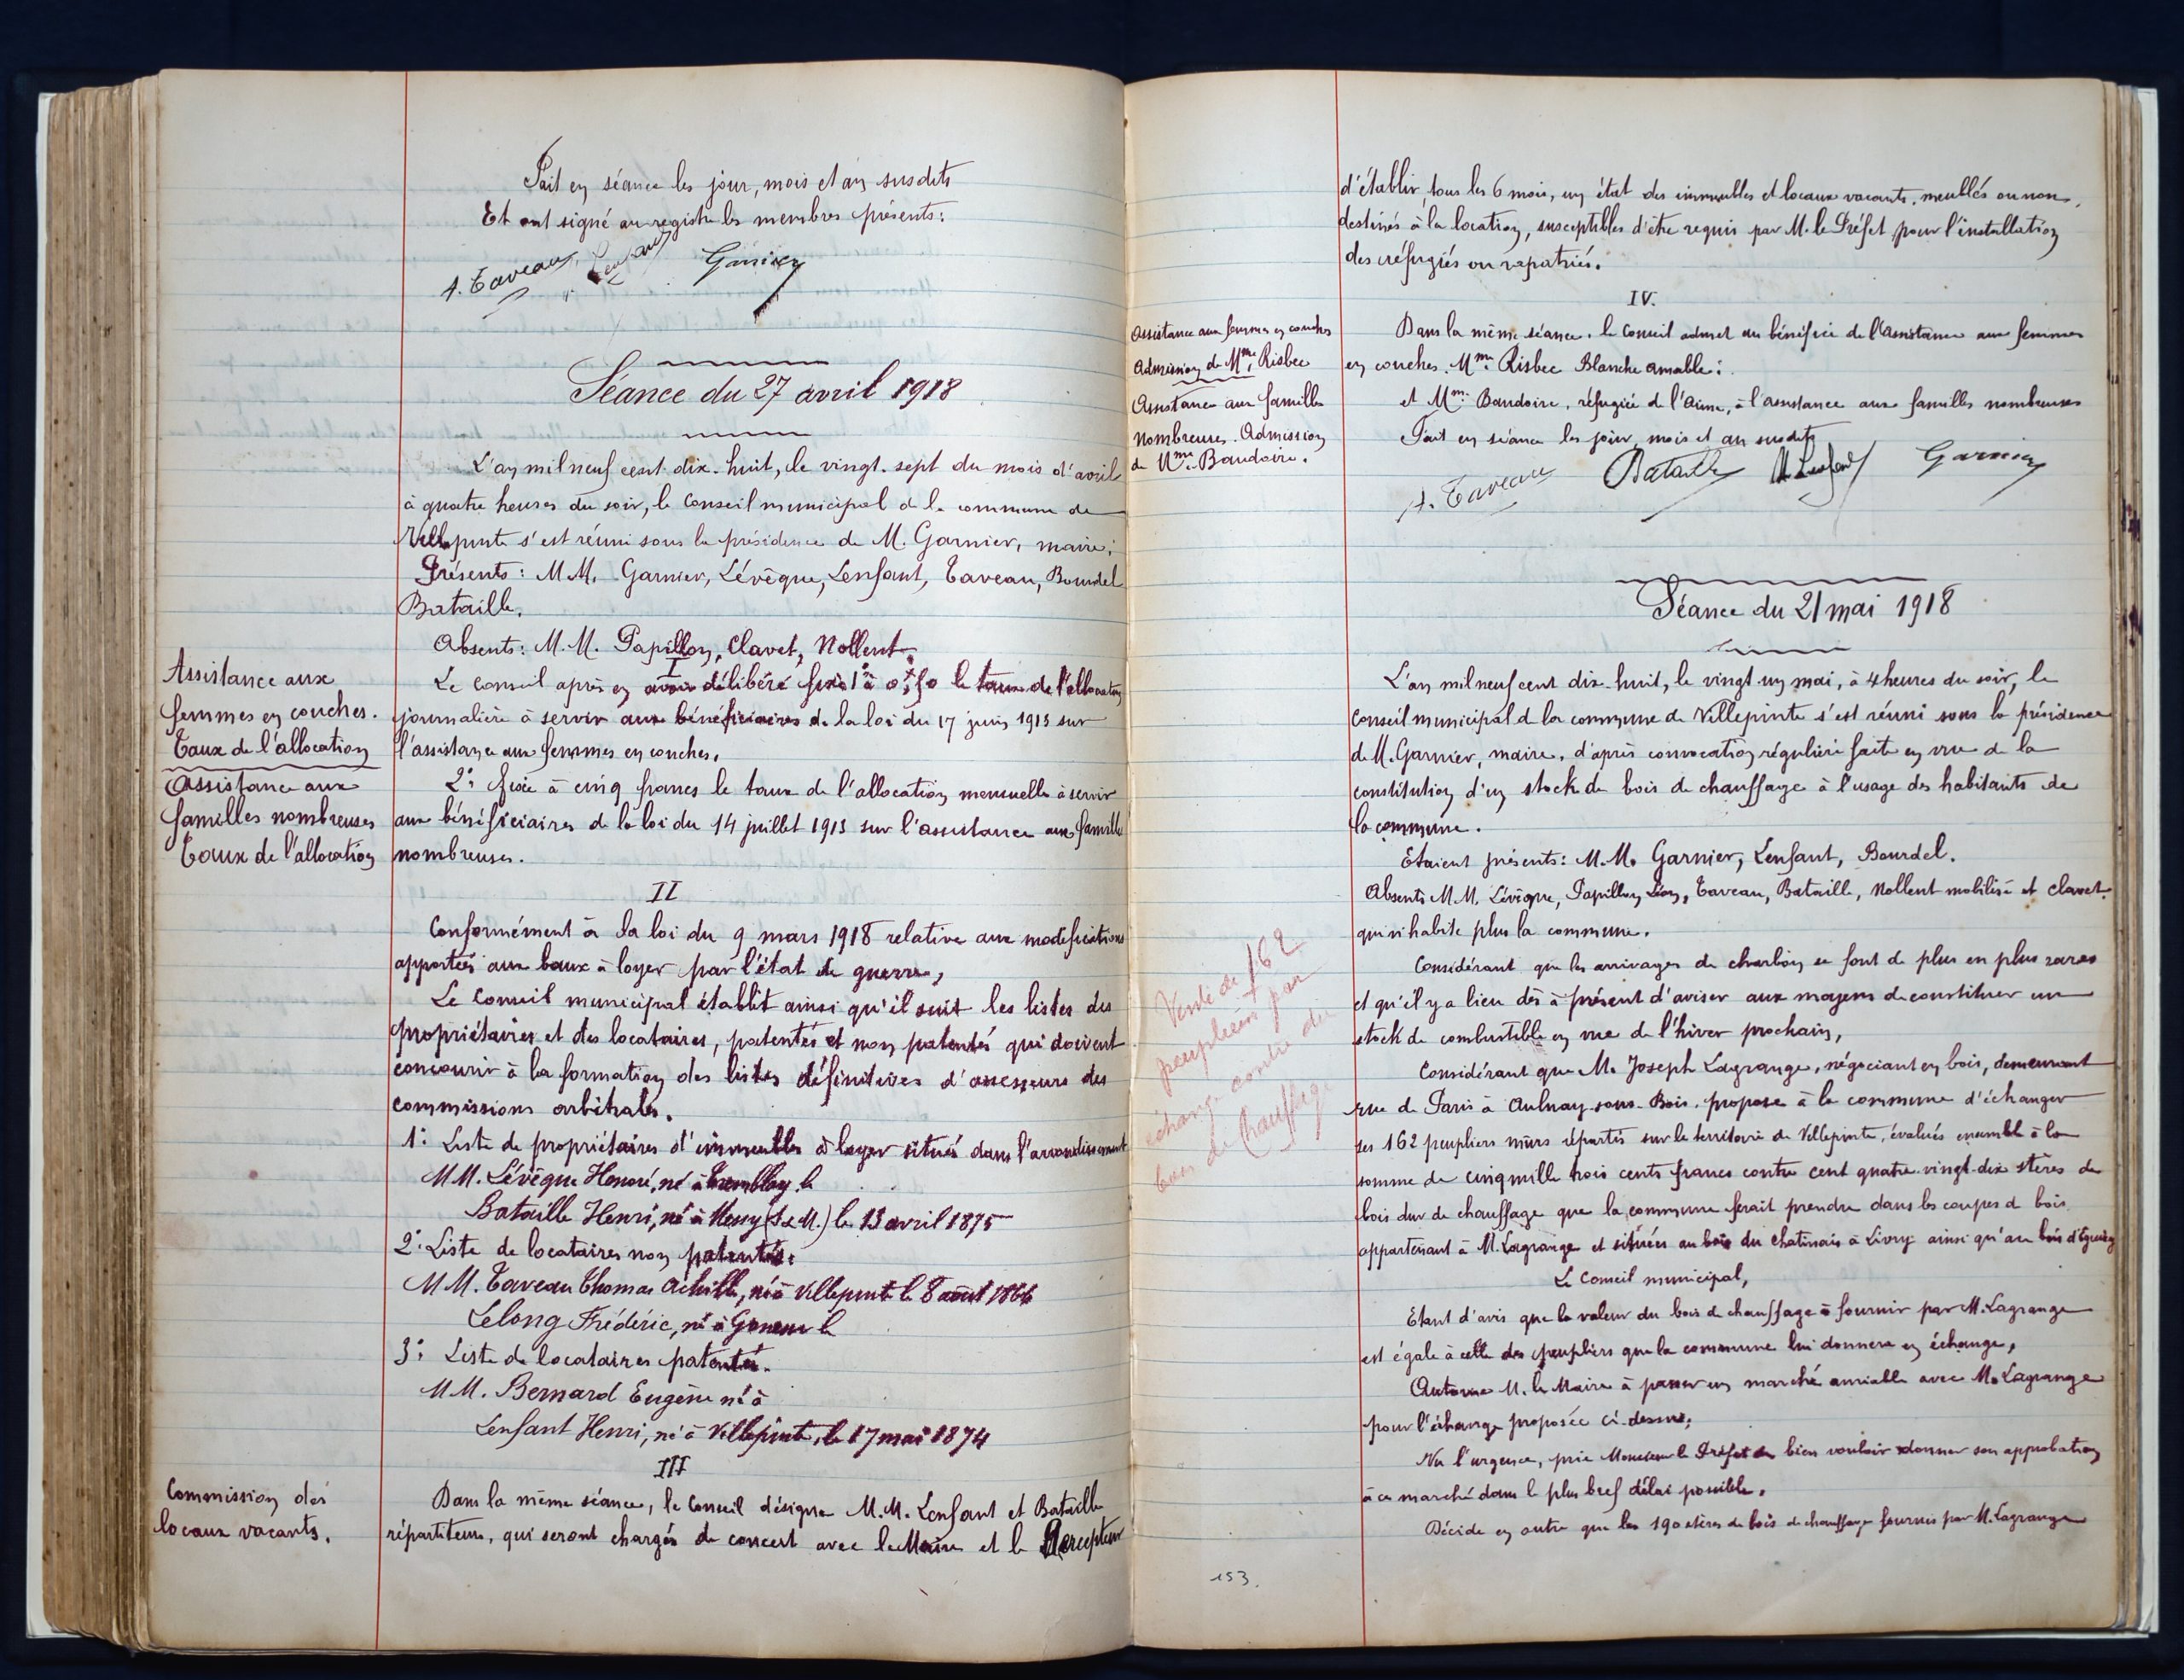 Fait en séance les jour, mois et an susdits
Et ont signé au registre les membres présents:
A. Taveau Lenfant Garnier
Séance du 27 avril 1918
L'an mil neuf cent dix-huit, le vingt-sept du mois d'avril
à quatre heures du soir, le Conseil municipal de la commune de
Villepinte s'est réuni sous la présidence de M. Garnier, maire;
Présents: M.M. Garnier, Lévêque, Lenfant, Taveau, Bourdel
Bataille.
Absents: M.M. Papillon, Clavet, Nollent.
I
Assistance aux
femmes en couches.
Taux de l'allocation
Assistance aux
familles nombreuses
Taux de l'allocation
Le Conseil après en avoir délibéré fixe 1° à 0f,50 le taux de l'allocation
journalière à servir aux bénéficiaires de la loi du 17 juin 1913 sur
l'assistance aux femmes en couches.
2° fixe à cinq francs le taux de l'allocation mensuelle à servir
aux bénéficiaires de la loi du 14 juillet 1913 sur l'assistance aux famille
nombreuses.
II
Conformément à la loi du 9 mars 1918 relative aux modifications
apportées aux baux à loyer par l'état de guerre,
Le Conseil municipal établit ainsi qu'il suit les listes des
propriétaires et des locataires, patentés et non patentés qui doivent
concourir à la formation des listes définitives d'assesseurs des
commissions arbitrales.
1° Liste de propriétaires d'immeubles à loyer situés dans l'arrondissement
M.M. Lévêque Honoré, né à Tremblay le
Bataille Henri, né à Messy (S & M.) le 13 avril 1875
2° Liste de locataires non patentés:
M.M. Taveau Thomas Achille, né à Villepinte le 8 août 1866
Lelong Frédéric, né à Gonesse le
3° Liste de locataires patentés.
M.M. Bernard Eugène né à
Lenfant Henri, né à Villepinte, le 17 mai 1874
III
Commission des
locaux vacants.
Dans la même séance, le Conseil désigne M.M. Lenfant et Bataille
répartiteurs, qui seront chargés de concert avec le Maire et le Percepteur
d'établir, tous les 6 mois, un état des immeubles et locaux vacants, meublés ou non,
destinés à la location, susceptibles d'être requis par M. le Préfet pour l'installation
des réfugiés ou rapatriés.
IV.
Assistance aux femmes en couches
Admission de Mme Risbec
Assistance aux familles
nombreuses. Admission
de Mme Baudoire.
Dans la même séance, le Conseil admet au bénéfice de l'Assistance aux femmes
en couches. Mme Risbec Blanche Amable;
et Mme Baudoire, réfugiée de l'Aisne, à l'assistance aux familles nombreuses
Fait en séance les jour, mois et an susdits
A. Taveau Bataille H. Lenfant Garnier
Séance du 21 mai 1918
L'an mil neuf cent dix-huit, le vingt un mai, à 4 heures du soir, le
Conseil municipal de la commune de Villepinte s'est réuni sous la présidence
de M. Garnier, maire, d'après convocation régulière faite en vue de la
constitution d'un stock de bois de chauffage à l'usage des habitants de
la commune.
Etaient présents: M.M. Garnier, Lenfant, Bourdel.
Absents M.M. Lévêque, Papillon Léon, Taveau, Bataille, Nollent mobilisé et Clavet
qui n'habite plus la commune.
Vente de 162
peupliers par
échange contre du
bois de Chauffage
Considérant que les arrivages de charbon se font de plus en plus rares
et qu'il y a lieu dès à présent d'aviser aux moyens de constituer un
stock de combustible en vue de l'hiver prochain,
Considérant que M. Joseph Lagrange, négociant en bois, demeurant
rue de Paris à Aulnay-sous-Bois, propose à la commune d'échanger
ses 162 peupliers mûrs répartis sur le territoire de Villepinte, évalués ensemble à la
somme de cinq mille trois cents francs contre cent quatre-vingt-dix stères de
bois dur de chauffage que la commune ferait prendre dans les coupes de bois
appartenant à M. Lagrange et situées au bois du Chatinais à Livry ainsi qu'au bois
Le Conseil municipal,
Etant d'avis que la valeur du bois de chauffage à fournir par M. Lagrange
est égale à celle des peupliers que la commune lui donnera en échange,
Autorise M. le Maire à passer un marché amiable avec M. Lagrange
pour l'échange proposée ci-dessus;
Vu l'urgence, prie Monsieur le Préfet de bien vouloir donner son approbation
à ce marché dans le plus bref délai possible.
Décide en outre que les 190 stères de bois de chauffage fournis par M. Lagrange
153.